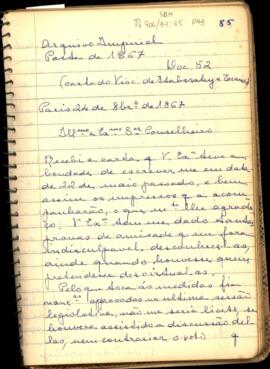 SBH
Pi 906/87-85 P43
85
Arquivo Imperial
Pasta de 1867
Doc. 52
(carta do Visc. de Itaborahy a Ecerio)
Paris 24 de 8bro de 1867
Illmo e Exmo Snr Conselheiro
Recebi a carta q V. Exa teve a
bondade de escrever-me em data
de 22 de maio passado, e bem
assim os impressos q a acom-
panharão, o que mto lhe agrade-
ço. V. Exa tem me dado tantas
provas de amizade que me fora
indisculpavel desconhecel-as,
ainda quando houvesse quem
pretendesse desvirtual-as.
Pelo que toca ás medidas fi-
nancas approvadas na ultima sessão
legislativa, não me seria licito, se
houvera assistido a discussão del-
las, nem contrariar o voto q